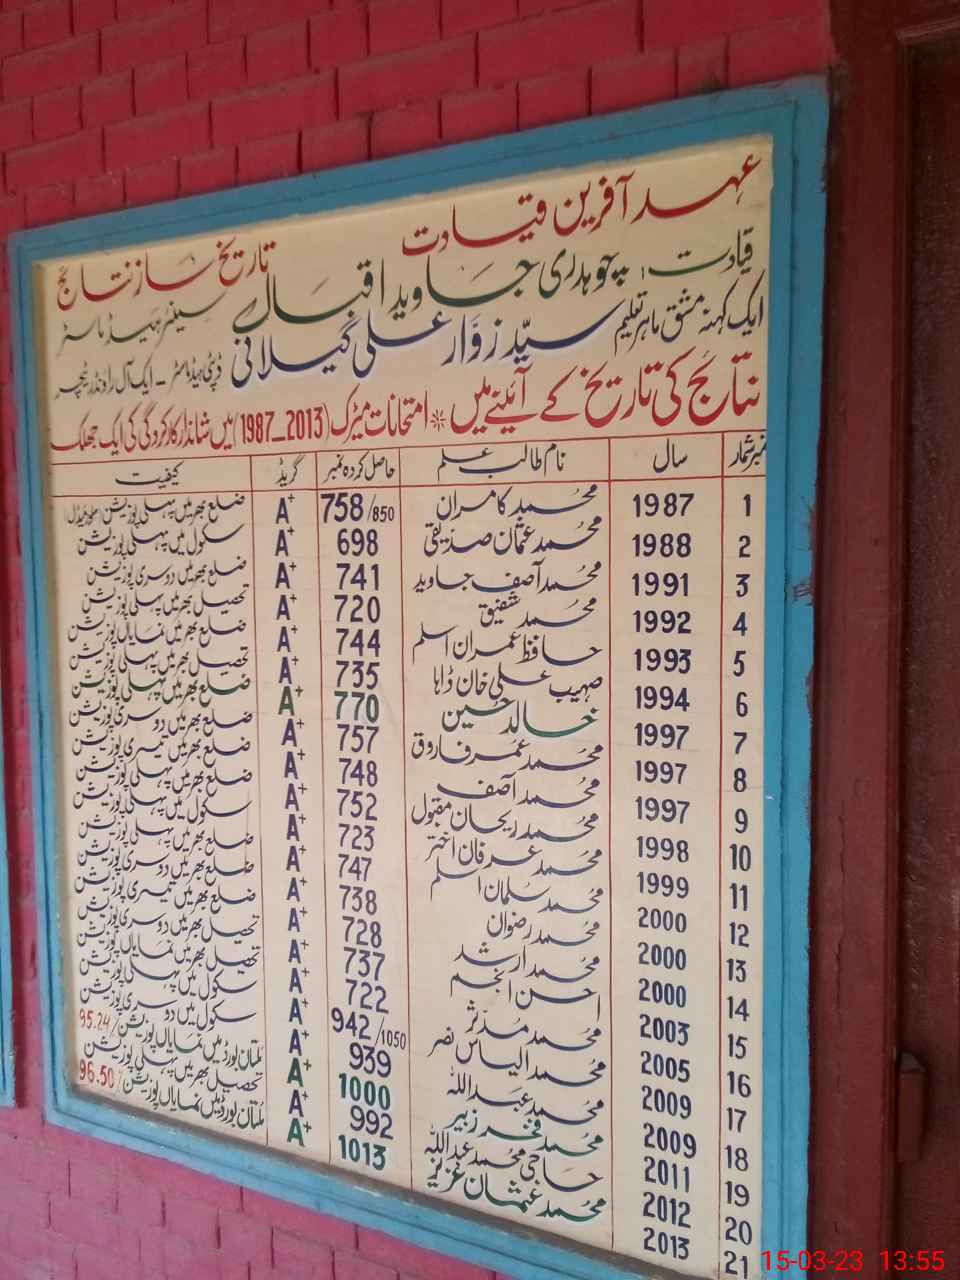 عہد آفرین قیادت تاریخ ساز نتائج
قیادت: چوہدری جاوید اقبال سینئر ہیڈ ماسٹر
ایک کہنہ مشق ماہر تعلیم سیّد زوّار علی گیلانی ڈپٹی ہیڈ ماسٹر - ایک آل راؤنڈر ٹیچر
نتائج کی تاریخ کے آئینے میں * امتحانات میٹرک (1987_2013) میں شاندار کارکردگی کی ایک جھلک
نمبر شمار سال نام طالب علم حاصل کردہ نمبر گریڈ کیفیت
1 1987 محمد کامران 758/850 A+ ضلع بھر میں پہلی پوزیشن
2 1988 محمد عثمان صدیقی 698 A+ سکول میں پہلی پوزیشن
3 1991 محمد آصف جاوید 741 A+ ضلع بھر میں دوسری پوزیشن
4 1992 محمد شفیق 720 A+ تحصیل بھر میں پہلی پوزیشن
5 1993 حافظ عمران اسلم 744 A+ ضلع بھر میں نمایاں پوزیشن
6 1994 صہیب علی خان ڈاہا 735 A+ تحصیل بھر میں پہلی پوزیشن
7 1997 خالد حسین 770 A+ ضلع بھر میں پہلی پوزیشن
8 1997 محمد عمر فاروق 757 A+ ضلع بھر میں دوسری پوزیشن
9 1997 محمد آصف 748 A+ ضلع بھر میں تیسری پوزیشن
10 1998 محمد ریحان مقبول 752 A+ ضلع بھر میں پہلی پوزیشن
11 1999 محمد عرفان اختر 723 A+ سکول میں پہلی پوزیشن
12 2000 محمد سلمان اسلم 747 A+ ضلع بھر میں پہلی پوزیشن
13 2000 محمد رضوان 738 A+ ضلع بھر میں دوسری پوزیشن
14 2000 محمد ارشد 728 A+ ضلع بھر میں تیسری پوزیشن
15 2003 احسن انجم 737 A+ تحصیل بھر میں دوسری پوزیشن
16 2005 محمد مدثر 722 A+ تحصیل بھر میں نمایاں پوزیشن
17 2009 محمد الیاس نصر 942/1050 A+ سکول میں پہلی پوزیشن
18 2009 محمد عبداللہ 939 A+ سکول میں دوسری پوزیشن
19 2011 محمد فخر زبیر 1000 A+ ملتان بورڈ میں نمایاں پوزیشن/ 95.24
20 2012 حاجی محمد عبداللہ 992 A+ تحصیل بھر میں پہلی پوزیشن
21 2013 محمد عثمان عزیز 1013 A+ ملتان بورڈ میں نمایاں پوزیشن/ 96.50
15-03-23 13:55